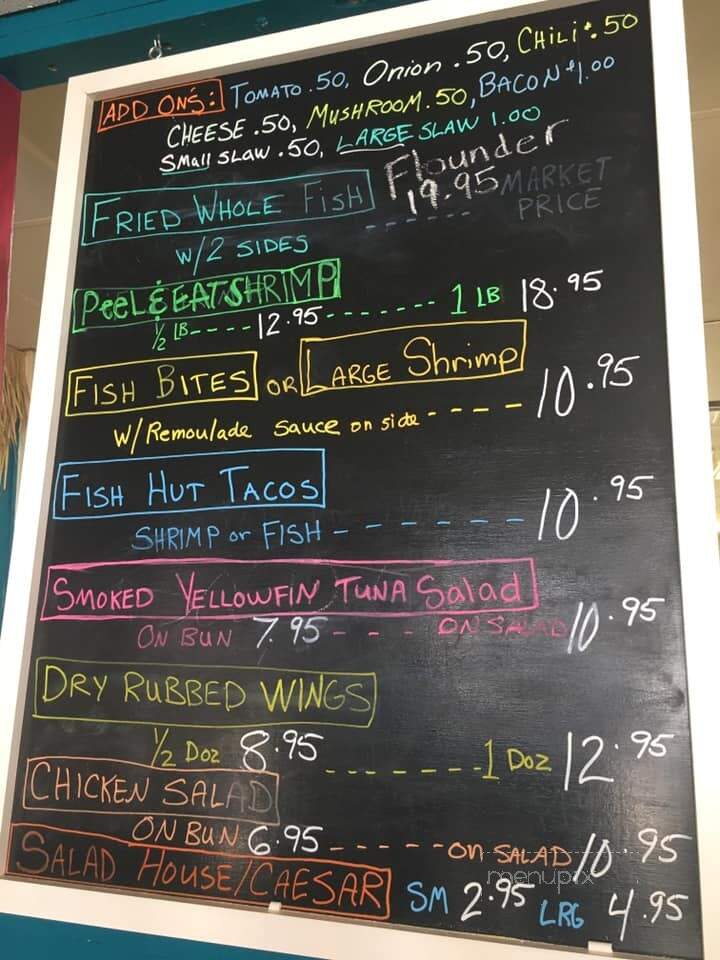 ADD ONS: TOMATO .50, Onion .50, CHILI $.50
CHEESE .50, MUSHROOM .50, BACON $1.00
SMALL SLAW .50, LARGE SLAW 1.00
FRIED WHOLE FISH Flounder
19.95 MARKET PRICE
W/2 SIDES
PeeL & EAT SHRIMP
½ LB---- 12.95 ------- 1 LB 18.95
FISH BITES OR LARGE Shrimp
W/Remoulade sauce on side ---- 10.95
FISH HUT TACOS
SHRIMP or FISH ------ 10.95
SMOKED YELLOWFIN TUNA Salad
ON BUN 7.95 --- ON SALAD 10.95
DRY RUBBED WINGS
½ Doz 8.95 ------- 1 Doz 12.95
CHICKEN SALAD
ON BUN 6.95 ----- on SALAD 10.95
SALAD HOUSE/CAESAR SM 2.95 LRG 4.95
menupix